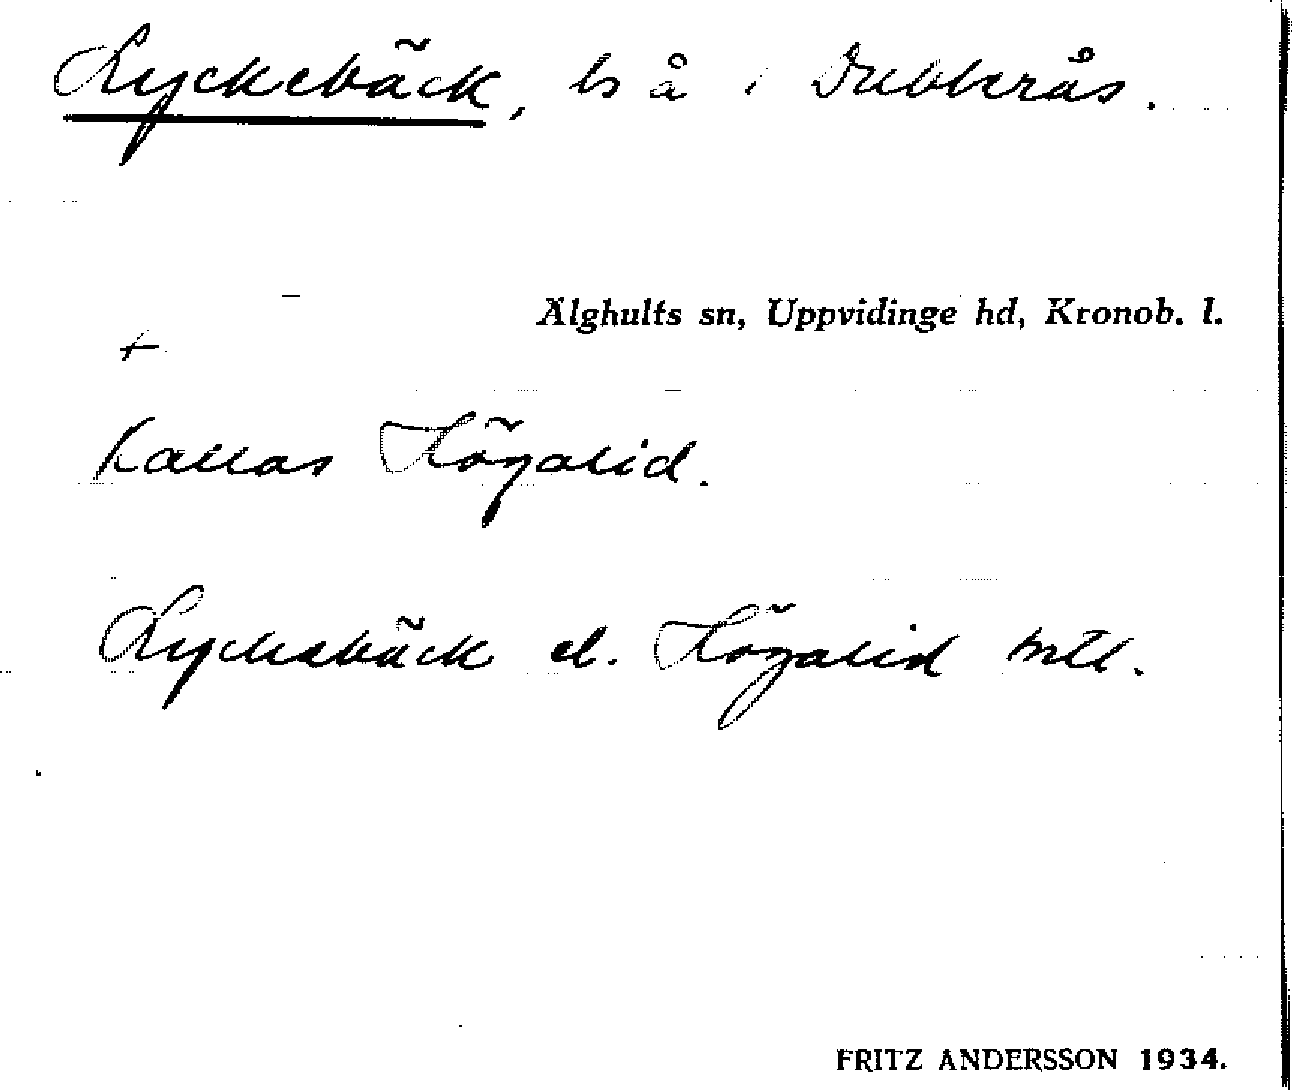 Lyckebäck, ls å i Dubberås.
Älghults sn, Uppvidinge hd, Kronob. l.
+
Kallas Högalid.
Lyckebäck el. Högalid mtl.
FRITZ ANDERSSON 1934.